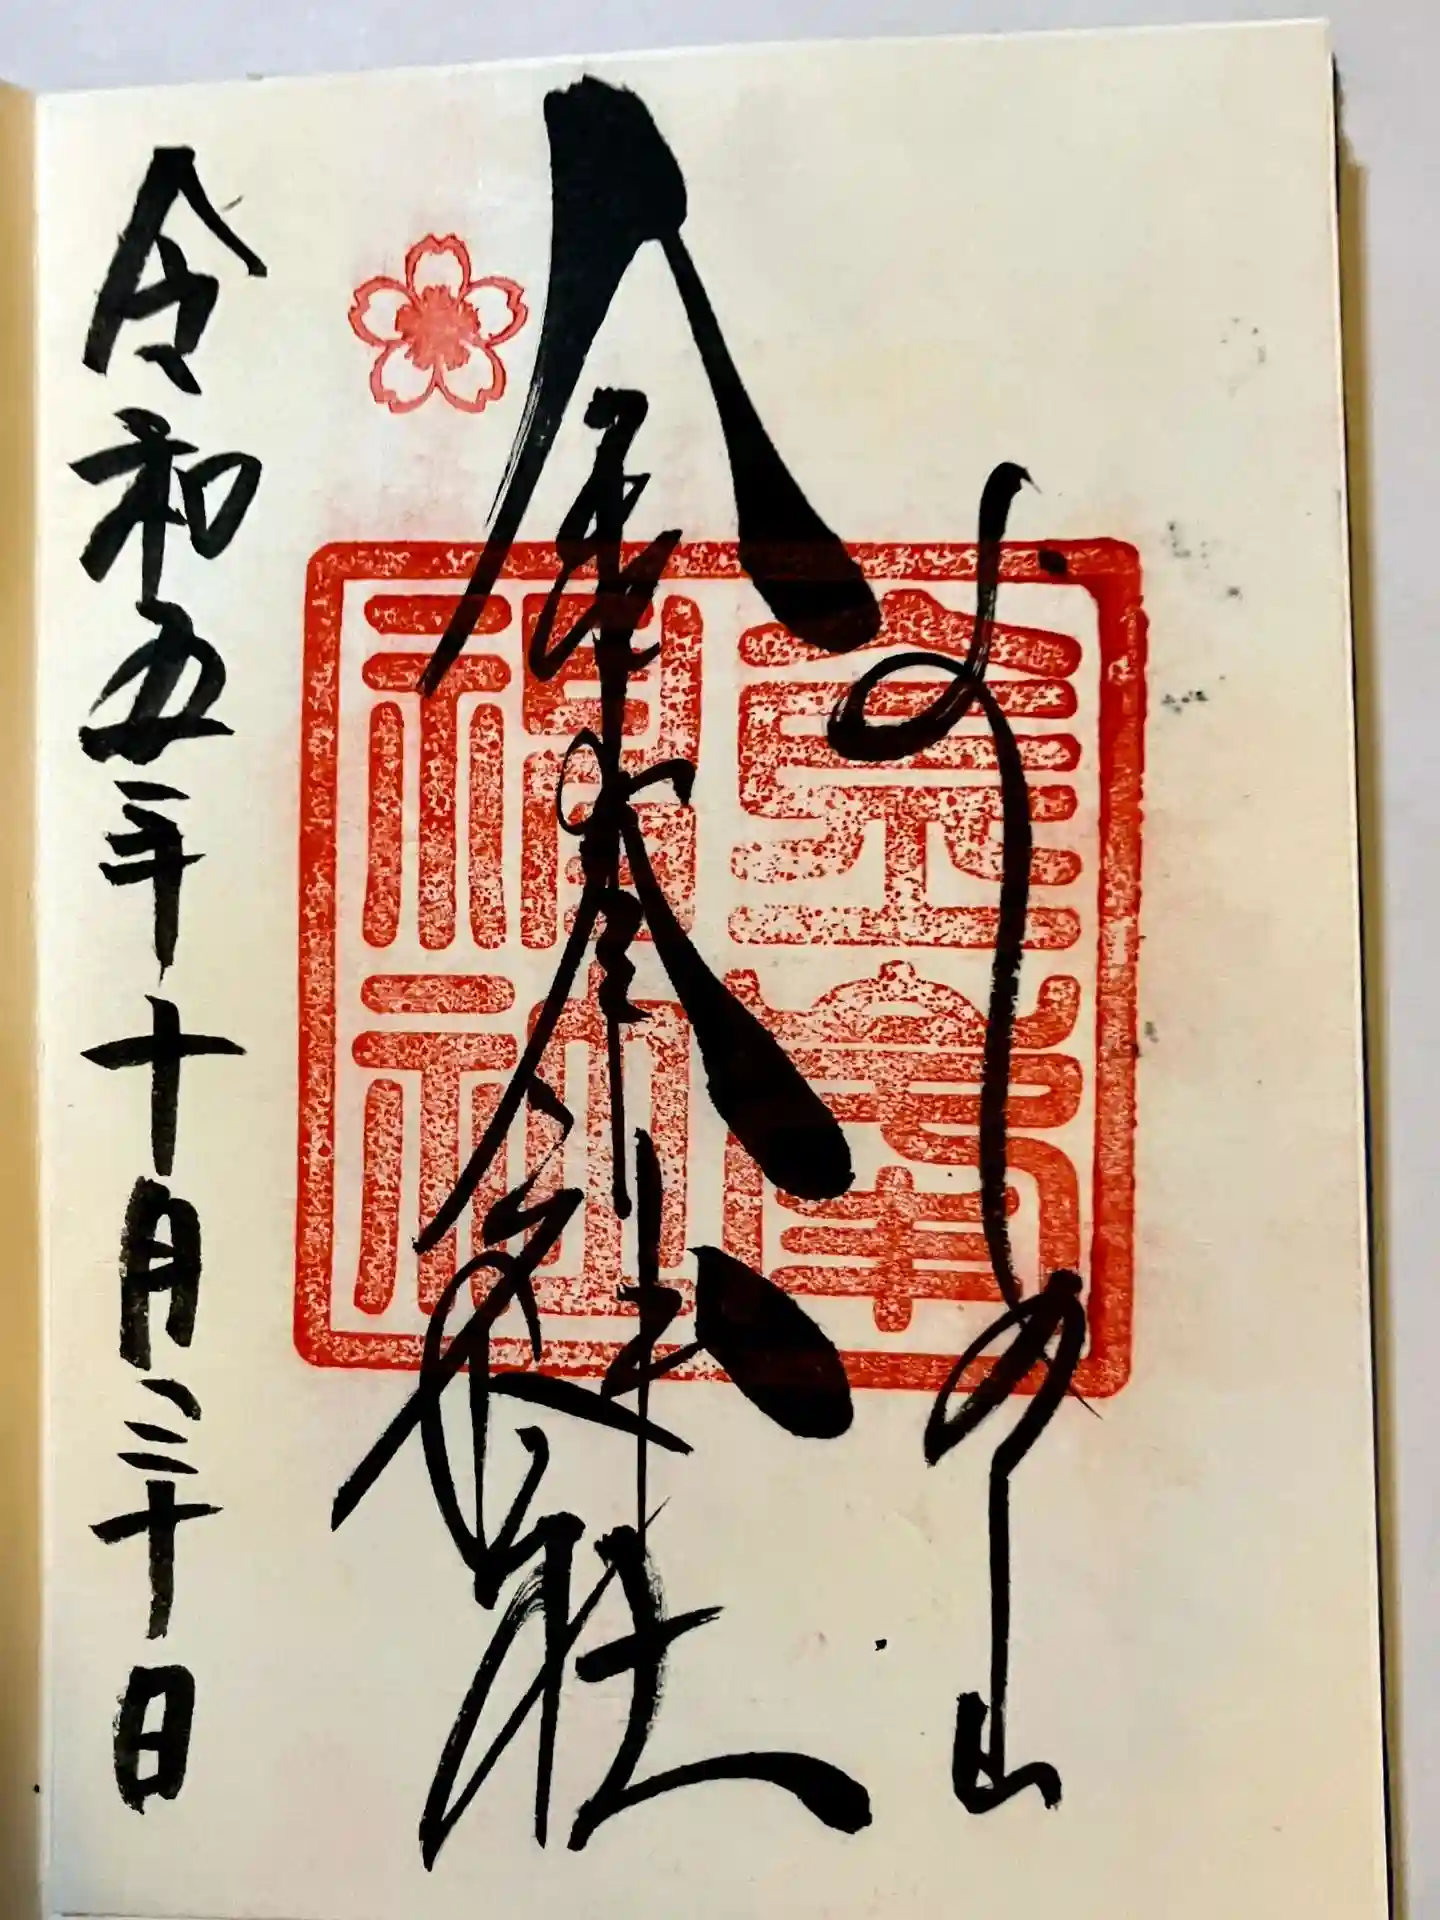 よしの山
金峯神社
金峯
神社
令和五年十月三十日